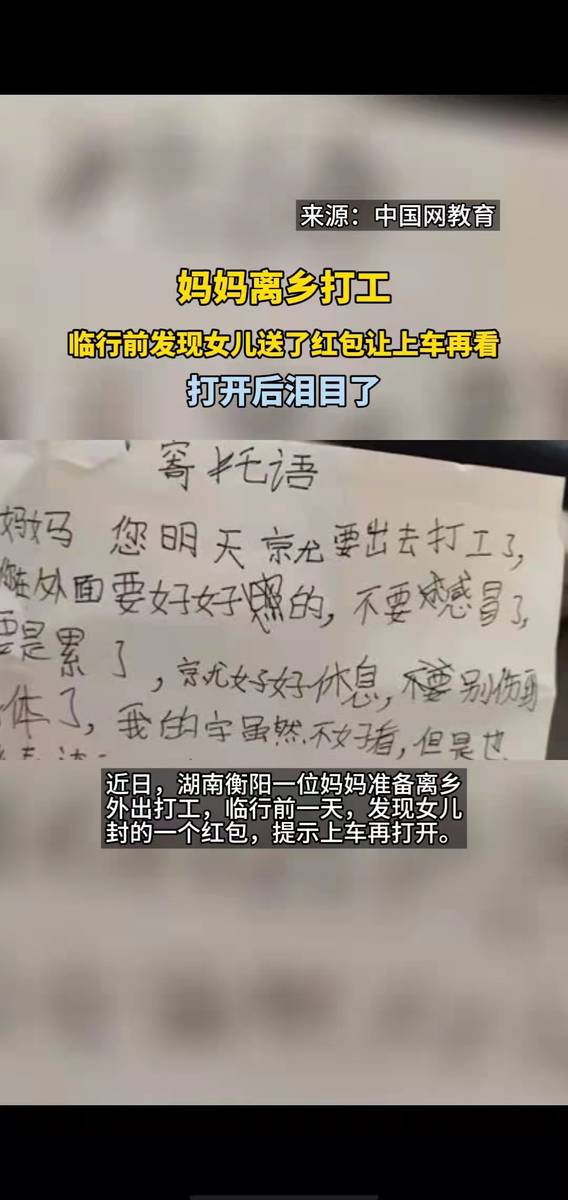 来源：中国网教育
妈妈离乡打工
临行前发现女儿送了红包让上车再看
打开后泪目了
寄托语
妈妈 您明天京尤要出去打工了，
您在外面要好好照的，不要感冒了，
要是累了，京尤好好休息，不要别伤到
体了，我的字虽然不好看，但是也
近日，湖南衡阳一位妈妈准备离乡
外出打工，临行前一天，发现女儿
封的一个红包，提示上车再打开。